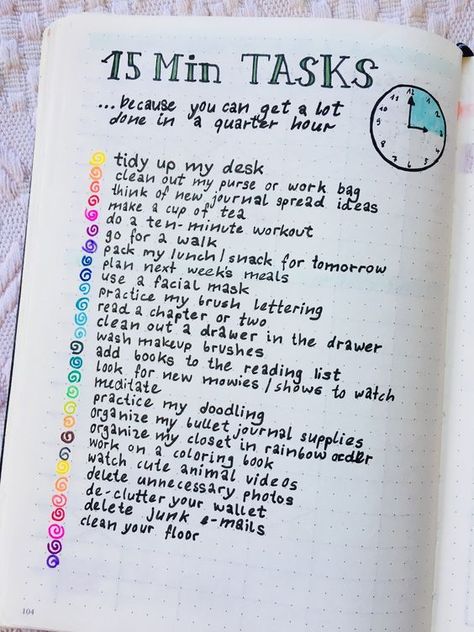 15 Min TASKS
...because you can get a lot
done in a quarter hour
11 12 1
10 2
9 3
8 4
7 6 5
tidy up my desk
clean out my purse or work bag
think of new journal spread ideas
make a cup of tea
do a ten-minute workout
go for a walk
pack my lunch/snack for tomorrow
plan next week's meals
use a facial mask
practice my brush lettering
read a chapter or two
clean out a drawer in the drawer
wash makeup brushes
add books to the reading list
look for new mowies/shows to watch
meditate
practice my doodling
organize my bullet journal supplies
organize my closet in rainbow order
work on a coloring book
watch cute animal videos
delete unnecessary photos
de-clutter your wallet
delete junk e-mails
clean your floor
104